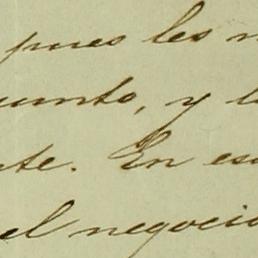 pues les
unto, y l
te. En es
el negocio